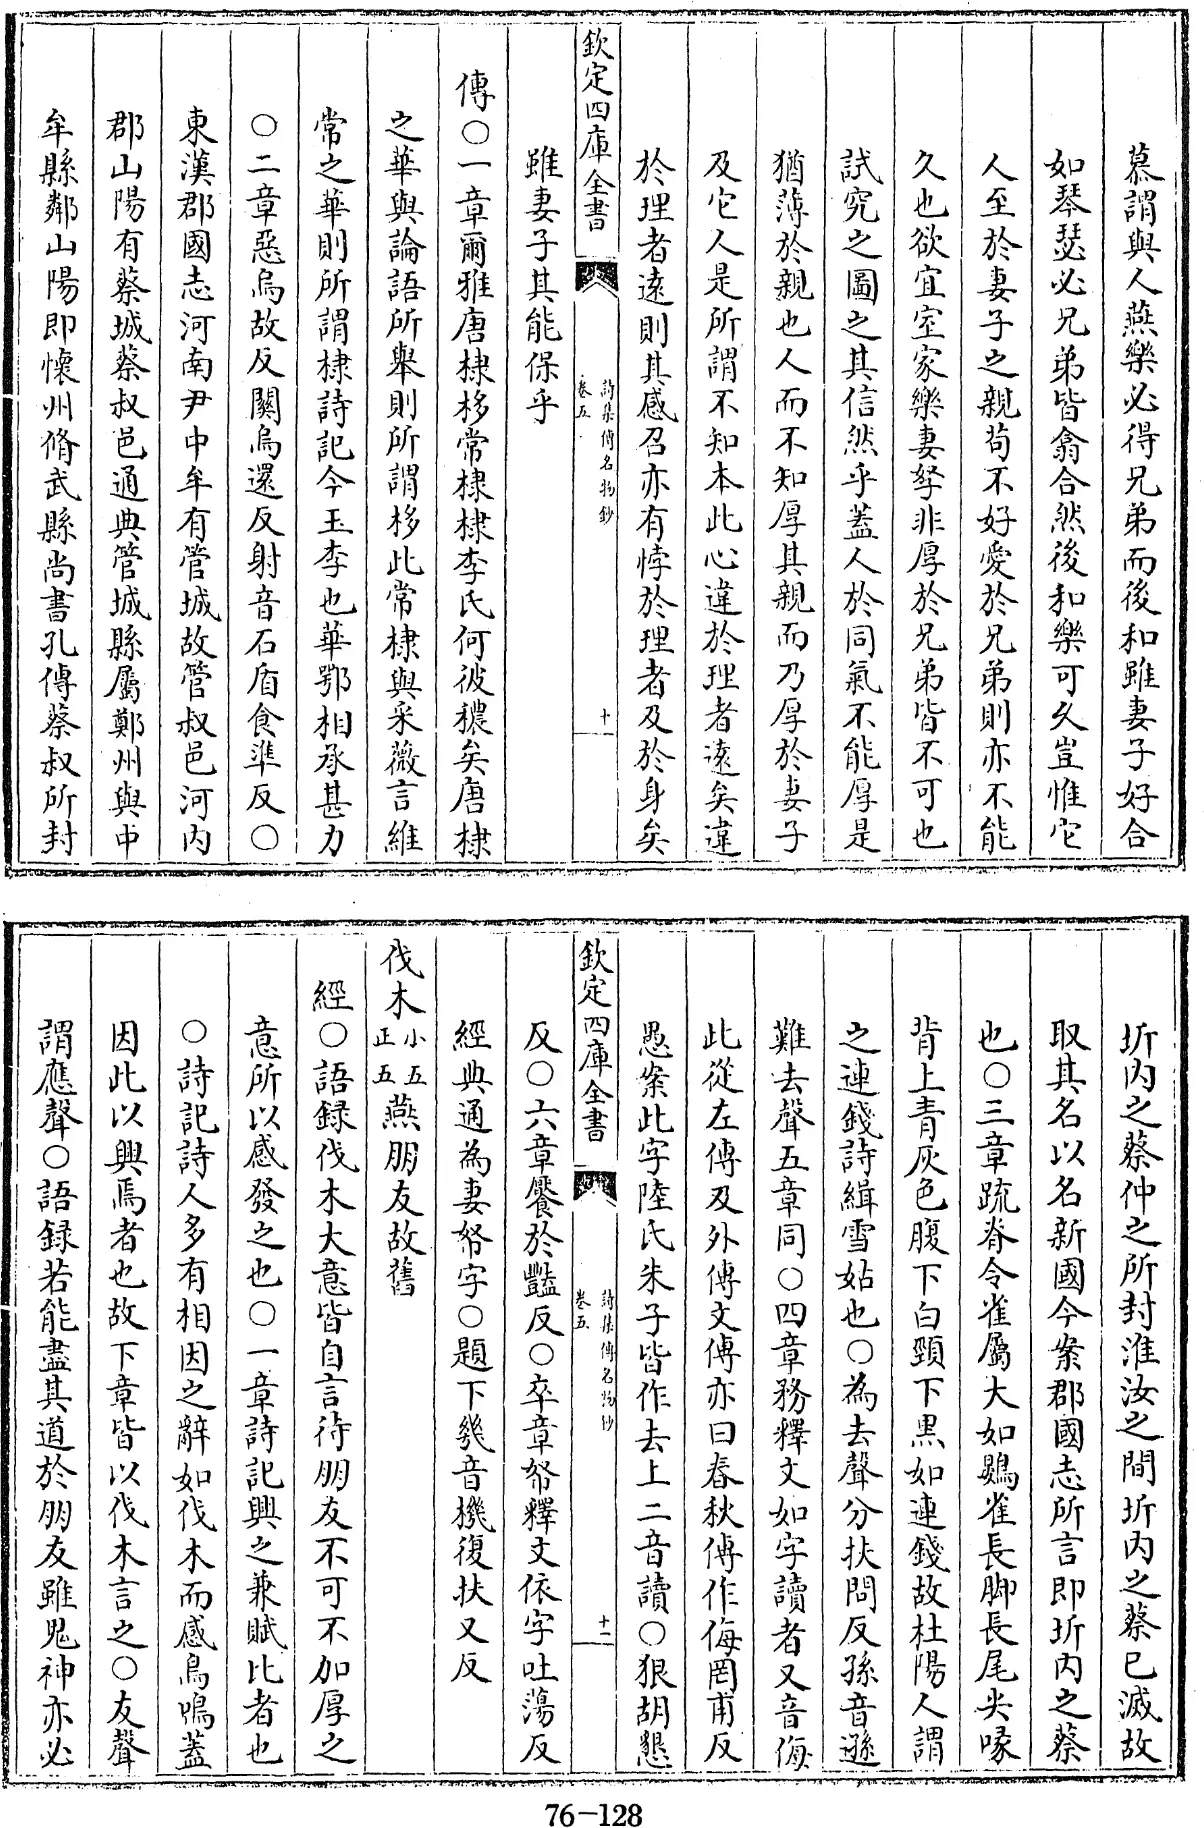 慕謂與人燕樂必得兄弟而後和雖妻子好合
如琴瑟必兄弟皆翕合然後和樂可久豈惟它
人至於妻子之親苟不好愛於兄弟則亦不能
久也欲宜室家樂妻孥非厚於兄弟皆不可也
試究之圖之其信然乎蓋人於同氣不能厚是
猶薄於親也人而不知厚其親而乃厚於妻子
及它人是所謂不知本此心違於理者遠矣違
於理者遠則其感召亦有悖於理者及於身矣
欽定四庫全書
詩集傳名物鈔
卷五
十
雖妻子其能保乎
傳○一章爾雅唐棣栘常棣棣李氏何彼穠矣唐棣
之華與論語所舉則所謂栘此常棣與采薇言維
常之華則所謂棣詩記今玉李也華鄂相承甚力
○二章惡烏故反闗烏還反射音石盾食準反○
東漢郡國志河南尹中牟有管城故管叔邑河内
郡山陽有蔡城蔡叔邑通典管城縣屬鄭州與中
牟縣鄰山陽即懷州脩武縣尚書孔傳蔡叔所封
圻内之蔡仲之所封淮汝之間圻内之蔡已滅故
取其名以名新國今案郡國志所言即圻内之蔡
也○三章䟽脊令雀屬大如鷃雀長脚長尾尖喙
背上青灰色腹下白頸下黒如連錢故杜陽人謂
之連錢詩緝雪姑也○為去聲分扶問反孫音遜
難去聲五章同○四章務釋文如字讀者又音侮
此從左傳及外傳文傳亦曰春秋傳作侮罔甫反
愚案此字陸氏朱子皆作去上二音讀○狠胡懇
欽定四庫全書
詩集傳名物鈔
卷五
十一
反○六章饜於豔反○卒章帑釋文依字吐蕩反
經典通為妻帑字○題下幾音機復扶又反
伐木小五正五燕朋友故舊
經○語録伐木大意皆自言待朋友不可不加厚之
意所以感發之也○一章詩記興之兼賦比者也
○詩記詩人多有相因之辭如伐木而感鳥鳴蓋
因此以興焉者也故下章皆以伐木言之○友聲
謂應聲○語録若能盡其道於朋友雖鬼神亦必
76-128